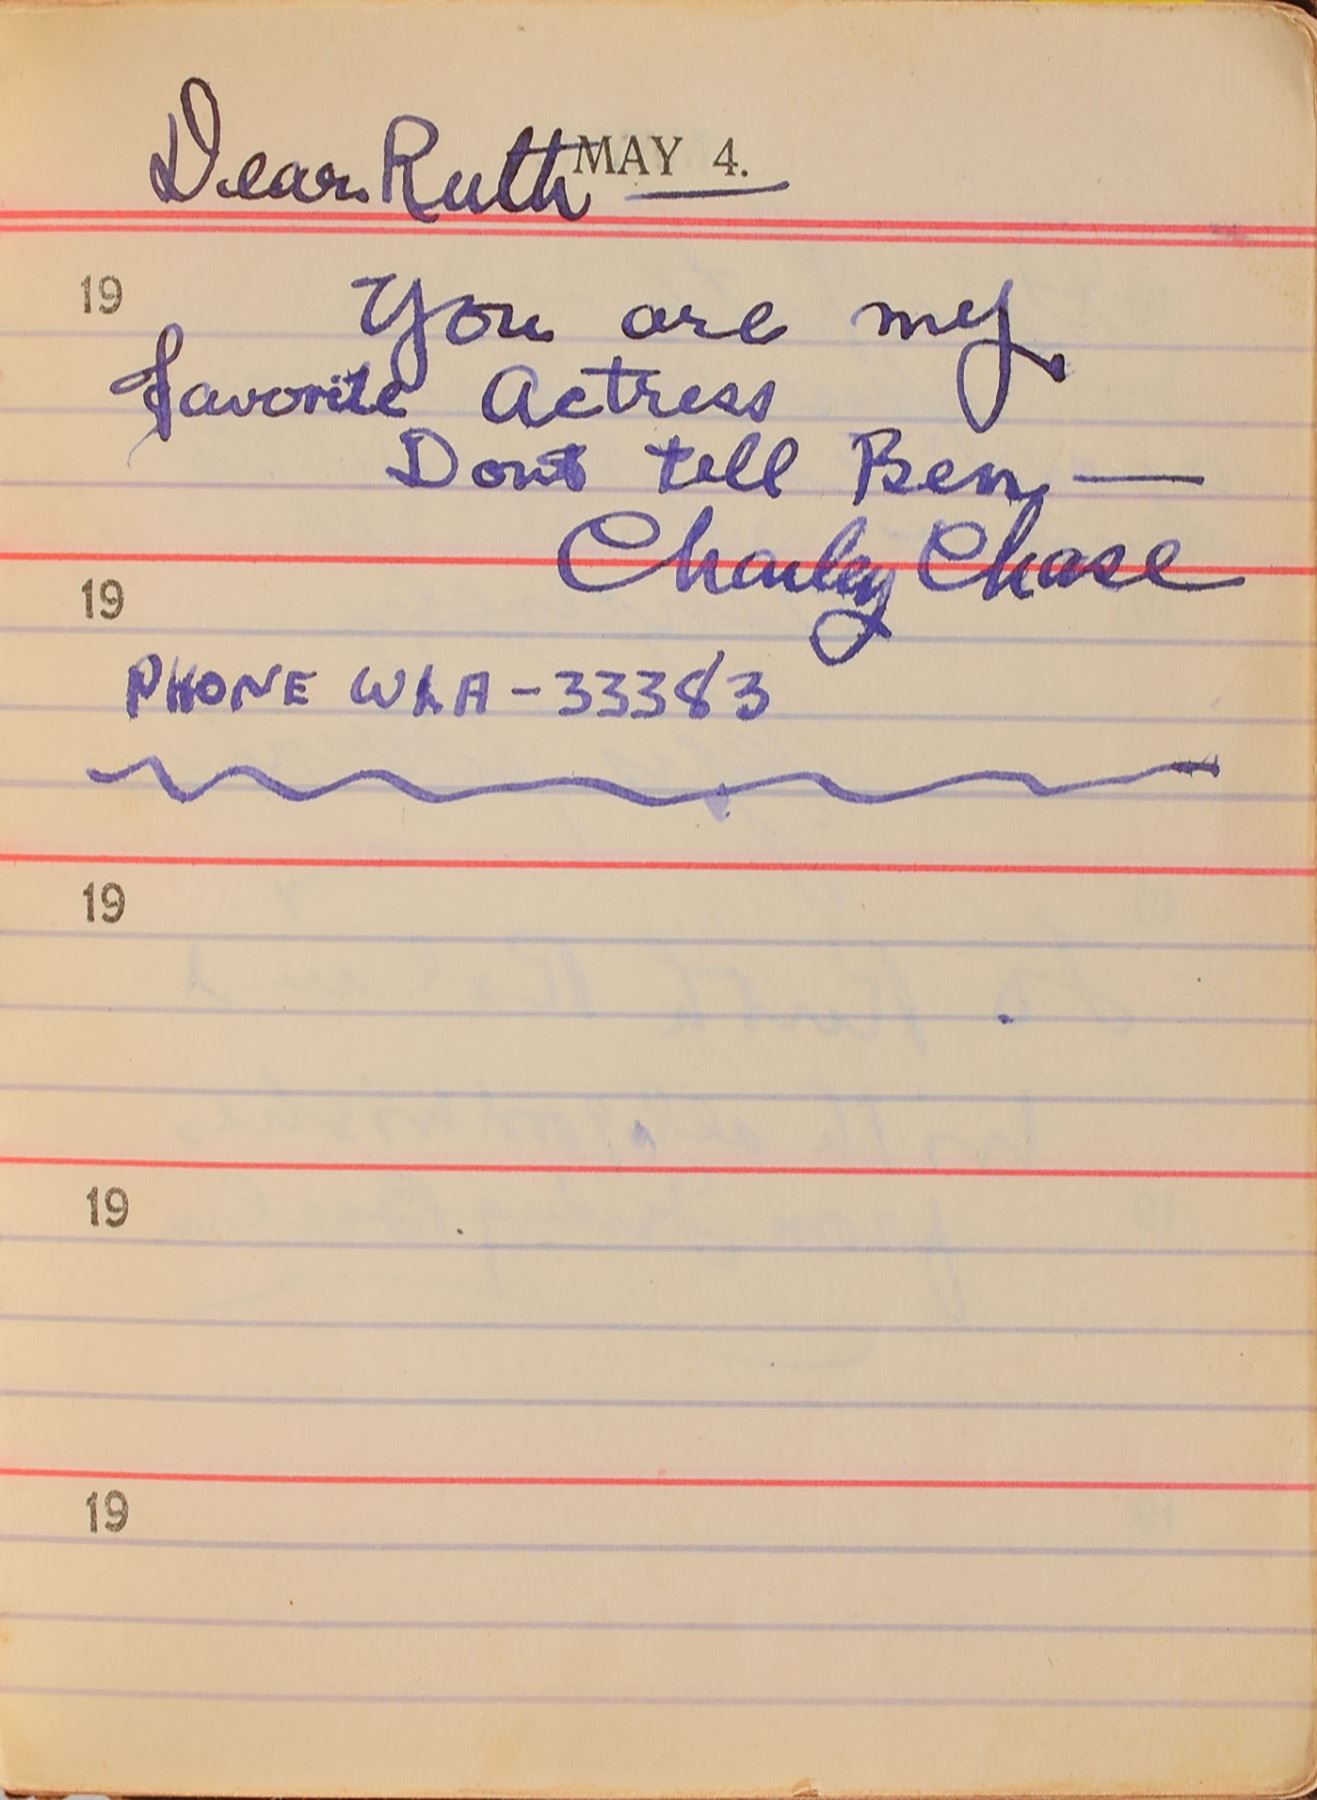 Dear Ruth MAY 4.
19 You are my
favorite Actress
Dont tell Ben —
Charley Chase
19
PHONE WLA - 33383
19
19
19